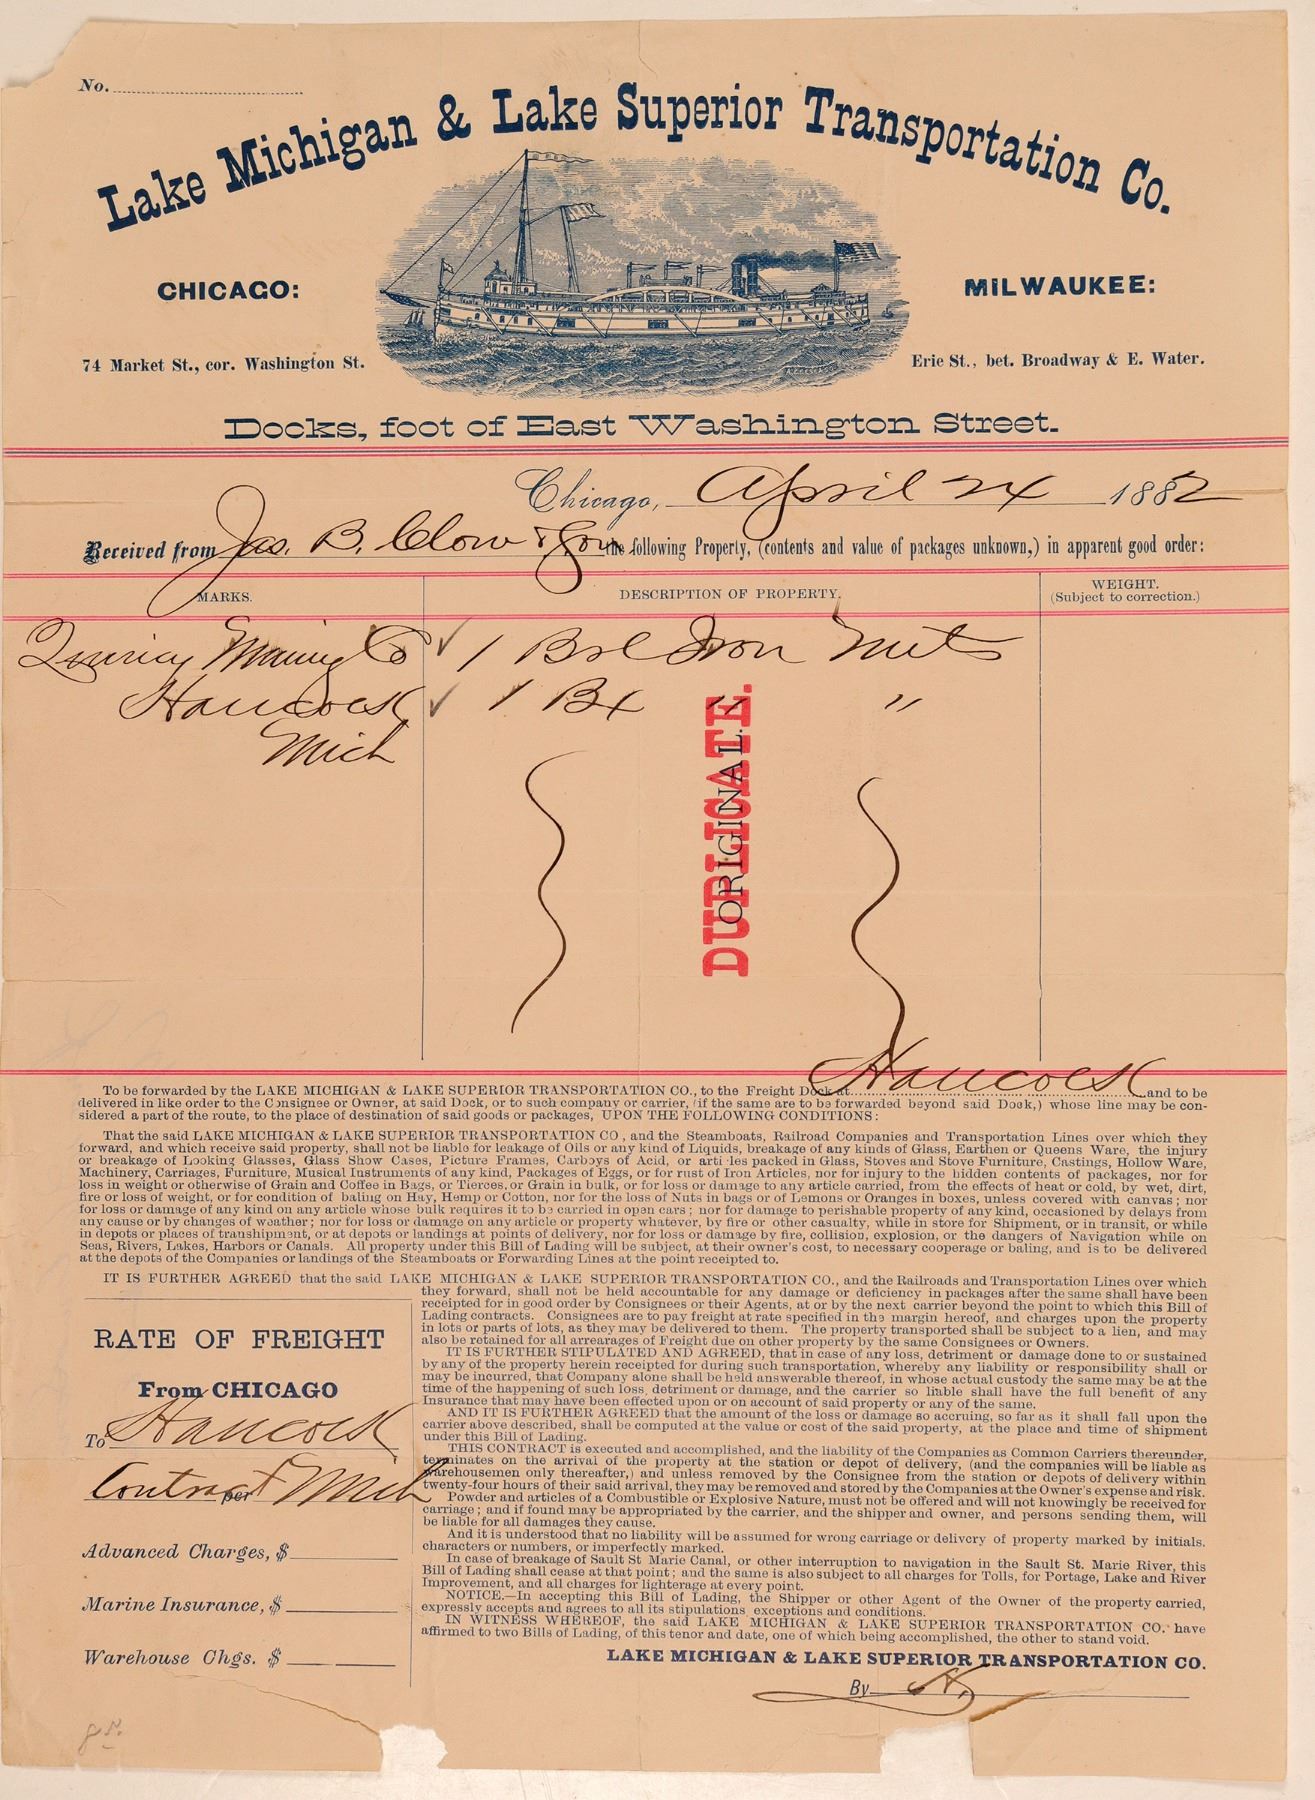 No.
Lake Michigan & Lake Superior Transportation Co.
CHICAGO:
MILWAUKEE:
74 Market St., cor. Washington St.
Erie St., bet. Broadway & E. Water.
Docks, foot of East Washington Street.
Chicago, April 24 1882
Received from Jas. B. Clow & Son the following Property, (contents and value of packages unknown,) in apparent good order:
MARKS.
DESCRIPTION OF PROPERTY.
WEIGHT.
(Subject to correction.)
Quincy Mining Co ✓ 1 Bbl Iron Nuts
Hancock ✓ 1 Bx " "
Mich
DUPLICATE.
ORIGINAL.
To be forwarded by the LAKE MICHIGAN & LAKE SUPERIOR TRANSPORTATION CO., to the Freight Dock at Hancock and to be
delivered in like order to the Consignee or Owner, at said Dock, or to such company or carrier, (if the same are to be forwarded beyond said Dock,) whose line may be con-
sidered a part of the route, to the place of destination of said goods or packages, UPON THE FOLLOWING CONDITIONS:
That the said LAKE MICHIGAN & LAKE SUPERIOR TRANSPORTATION CO, and the Steamboats, Railroad Companies and Transportation Lines over which they
forward, and which receive said property, shall not be liable for leakage of Oils or any kind of Liquids, breakage of any kinds of Glass, Earthen or Queens Ware, the injury
or breakage of Looking Glasses, Glass Show Cases, Picture Frames, Carboys of Acid, or arti les packed in Glass, Stoves and Stove Furniture, Castings, Hollow Ware,
Machinery, Carriages, Furniture, Musical Instruments of any kind, Packages of Eggs, or for rust of Iron Articles, nor for injury to the hidden contents of packages, nor for
loss in weight or otherwise of Grain and Coffee in Bags, or Tierces, or Grain in bulk, or for loss or damage to any article carried, from the effects of heat or cold, by wet, dirt,
fire or loss of weight, or for condition of baling on Hay, Hemp or Cotton, nor for the loss of Nuts in bags or of Lemons or Oranges in boxes, unless covered with canvas; nor
for loss or damage of any kind on any article whose bulk requires it to be carried in open cars; nor for damage to perishable property of any kind, occasioned by delays from
any cause or by changes of weather; nor for loss or damage on any article or property whatever, by fire or other casualty, while in store for Shipment, or in transit, or while
in depots or places of transhipment, or at depots or landings at points of delivery, nor for loss or damage by fire, collision, explosion, or the dangers of Navigation while on
Seas, Rivers, Lakes, Harbors or Canals. All property under this Bill of Lading will be subject, at their owner's cost, to necessary cooperage or baling, and is to be delivered
at the depots of the Companies or landings of the Steamboats or Forwarding Lines at the point receipted to.
IT IS FURTHER AGREED that the said LAKE MICHIGAN & LAKE SUPERIOR TRANSPORTATION CO., and the Railroads and Transportation Lines over which
they forward, shall not be held accountable for any damage or deficiency in packages after the same shall have been
receipted for in good order by Consignees or their Agents, at or by the next carrier beyond the point to which this Bill of
Lading contracts. Consignees are to pay freight at rate specified in the margin hereof, and charges upon the property
in lots or parts of lots, as they may be delivered to them. The property transported shall be subject to a lien, and may
also be retained for all arrearages of Freight due on other property by the same Consignees or Owners.
IT IS FURTHER STIPULATED AND AGREED, that in case of any loss, detriment or damage done to or sustained
by any of the property herein receipted for during such transportation, whereby any liability or responsibility shall or
may be incurred, that Company alone shall be held answerable thereof, in whose actual custody the same may be at the
time of the happening of such loss, detriment or damage, and the carrier so liable shall have the full benefit of any
Insurance that may have been effected upon or on account of said property or any of the same.
AND IT IS FURTHER AGREED that the amount of the loss or damage so accruing, so far as it shall fall upon the
carrier above described, shall be computed at the value or cost of the said property, at the place and time of shipment
under this Bill of Lading.
THIS CONTRACT is executed and accomplished, and the liability of the Companies as Common Carriers thereunder,
terminates on the arrival of the property at the station or depot of delivery, (and the companies will be liable as
warehousemen only thereafter,) and unless removed by the Consignee from the station or depots of delivery within
twenty-four hours of their said arrival, they may be removed and stored by the Companies at the Owner's expense and risk.
Powder and articles of a Combustible or Explosive Nature, must not be offered and will not knowingly be received for
carriage; and if found may be appropriated by the carrier, and the shipper and owner, and persons sending them, will
be liable for all damages they cause.
And it is understood that no liability will be assumed for wrong carriage or delivery of property marked by initials.
characters or numbers, or imperfectly marked.
In case of breakage of Sault St Marie Canal, or other interruption to navigation in the Sault St. Marie River, this
Bill of Lading shall cease at that point; and the same is also subject to all charges for Tolls, for Portage, Lake and River
Improvement, and all charges for lighterage at every point.
NOTICE.—In accepting this Bill of Lading, the Shipper or other Agent of the Owner of the property carried,
expressly accepts and agrees to all its stipulations, exceptions and conditions.
IN WITNESS WHEREOF, the said LAKE MICHIGAN & LAKE SUPERIOR TRANSPORTATION CO. have
affirmed to two Bills of Lading, of this tenor and date, one of which being accomplished, the other to stand void.
LAKE MICHIGAN & LAKE SUPERIOR TRANSPORTATION CO.
By
RATE OF FREIGHT
From CHICAGO
To Hancock
Contract per Mich
Advanced Charges, $
Marine Insurance, $
Warehouse Chgs. $